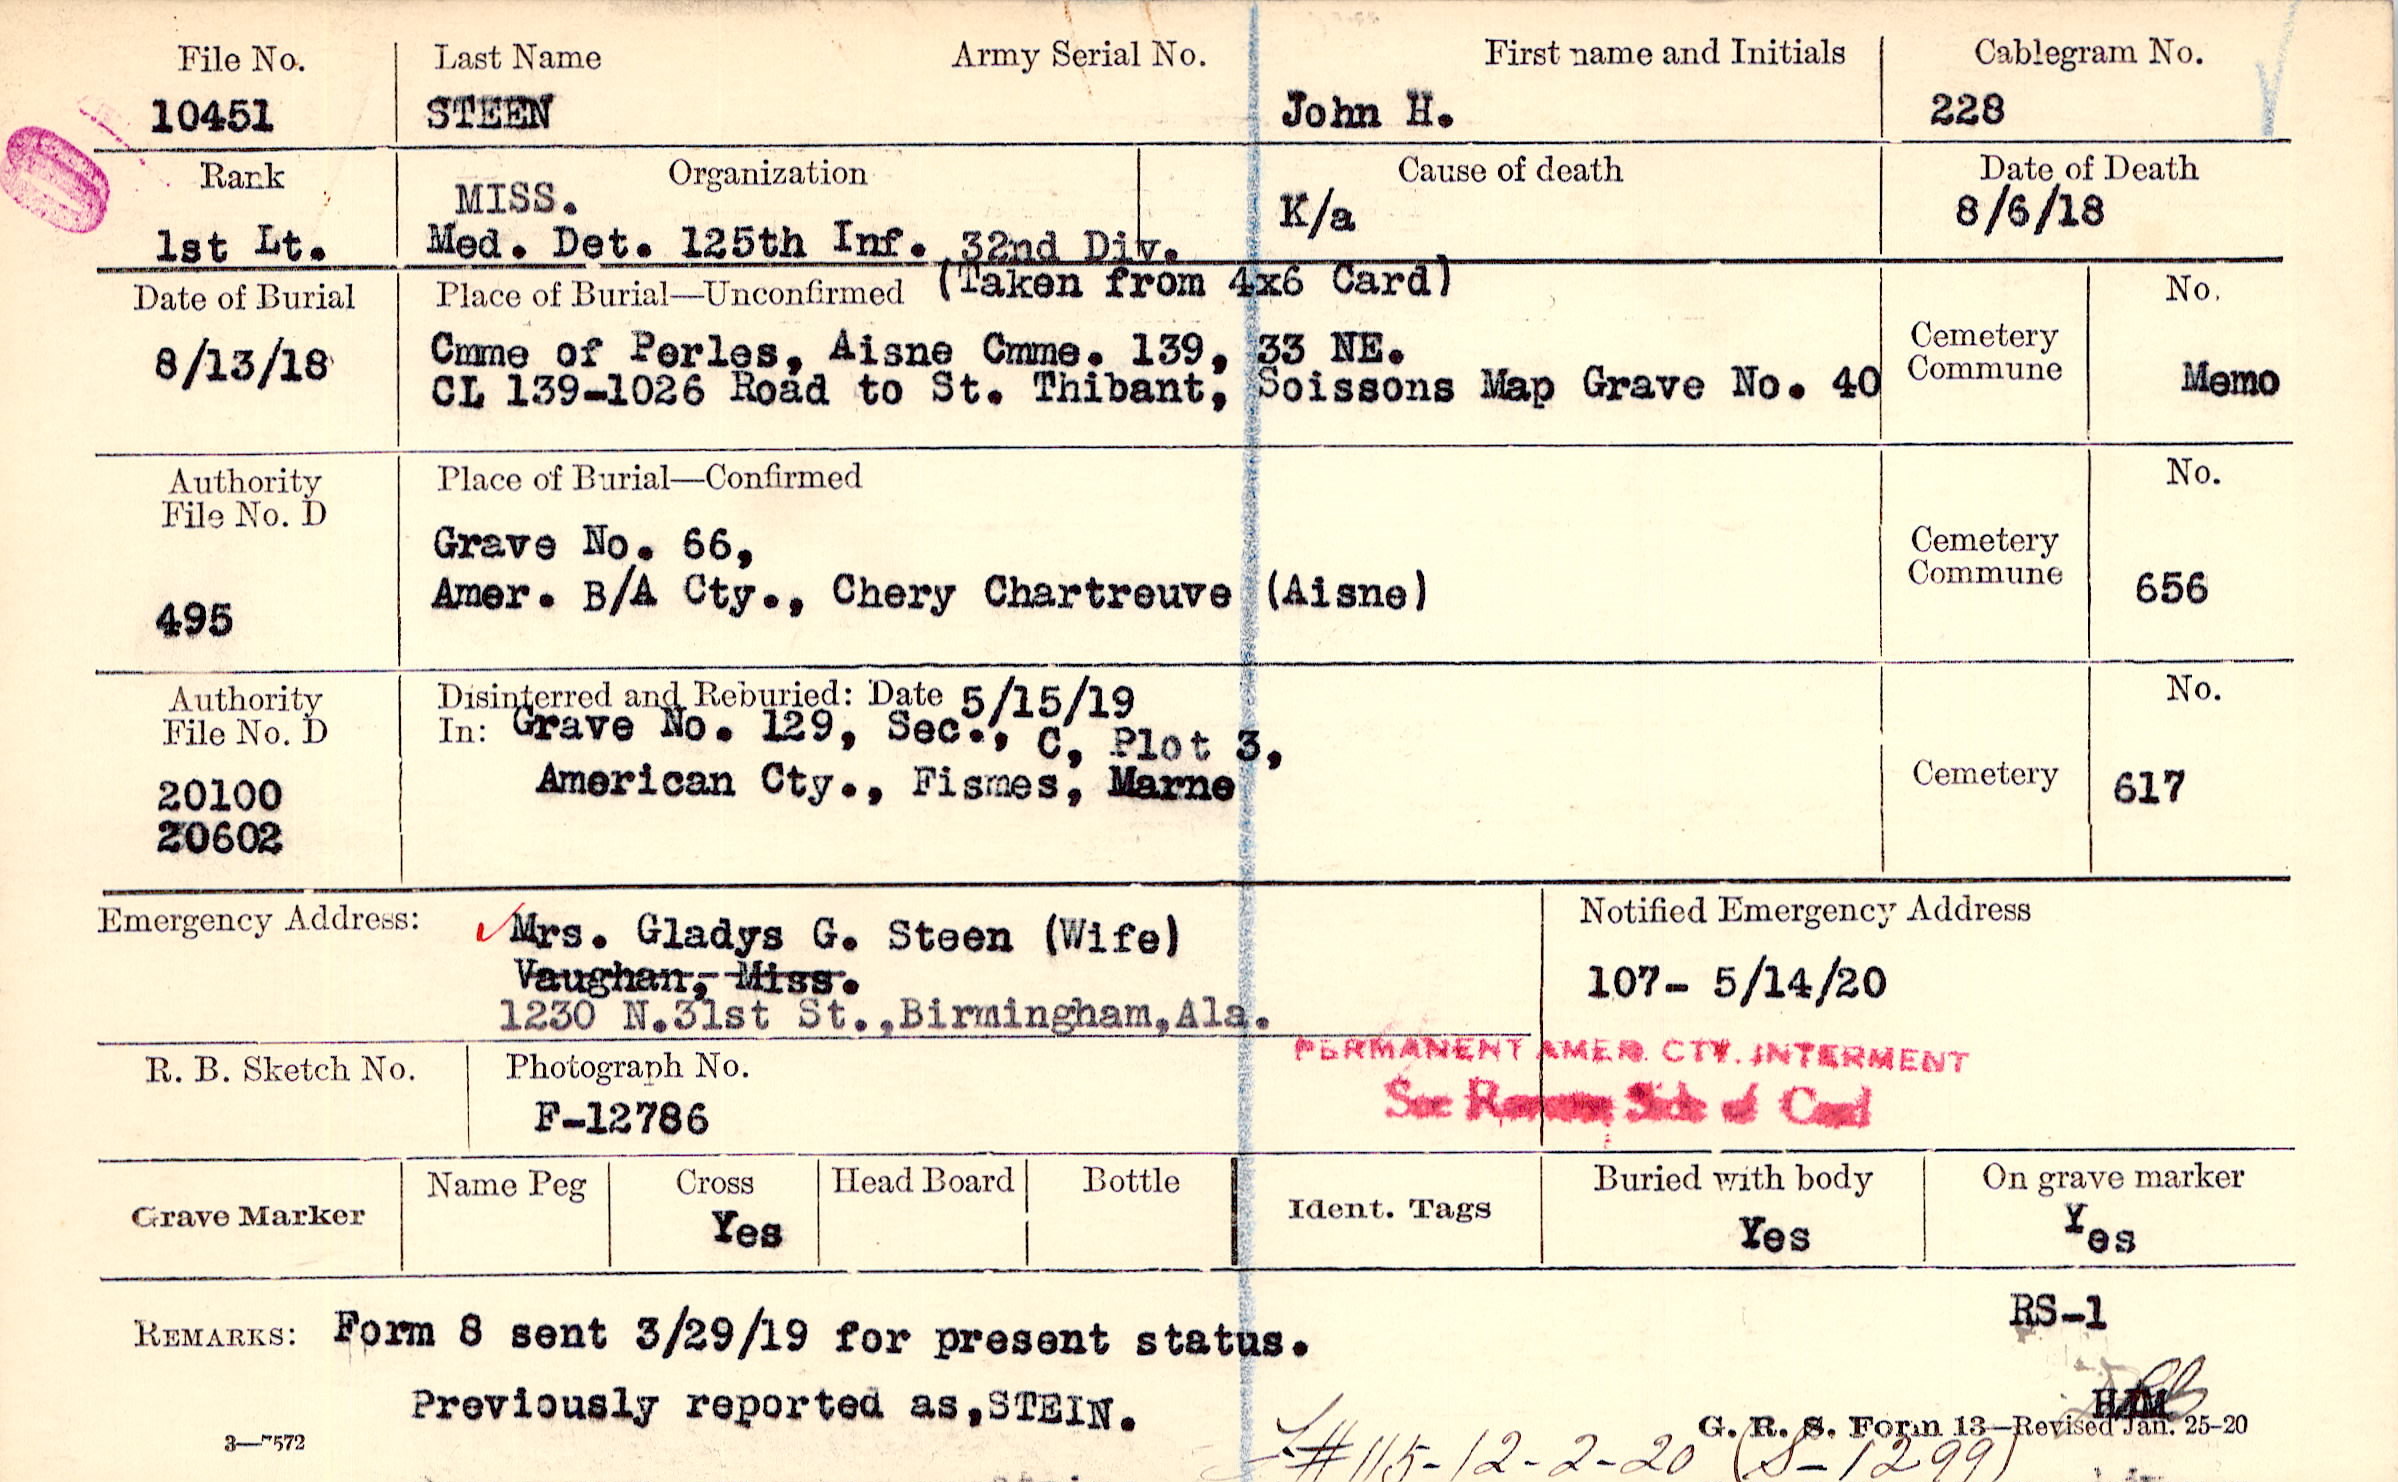 File No. Last Name Army Serial No. First name and Initials Cablegram No.
10451 STEEN John H. 228
Rank Organization Cause of death Date of Death
MISS.
1st Lt. Med. Det. 125th Inf. 32nd Div. K/a 8/6/18
Date of Burial Place of Burial—Unconfirmed (Taken from 4x6 Card) No.
8/13/18 Cmme of Perles, Aisne Cmme. 139, 33 NE. Cemetery
CL 139-1026 Road to St. Thibant, Soissons Map Grave No. 40 Commune Memo
Authority Place of Burial—Confirmed No.
File No. D
Grave No. 66, Cemetery
495 Amer. B/A Cty., Chery Chartreuve (Aisne) Commune 656
Authority Disinterred and Reburied: Date 5/15/19 No.
File No. D In: Grave No. 129, Sec., C, Plot 3,
20100 American Cty., Fismes, Marne Cemetery 617
20602
Emergency Address: Mrs. Gladys G. Steen (Wife) Notified Emergency Address
Vaughan, Miss. 107- 5/14/20
1230 N.31st St.,Birmingham,Ala.
PERMANENT AMER. CTY. INTERMENT
R. B. Sketch No. Photograph No. See Reverse Side of Card
F-12786
Grave Marker Name Peg Cross Head Board Bottle Ident. Tags Buried with body On grave marker
Yes Yes Yes
RS-1
REMARKS: Form 8 sent 3/29/19 for present status.
Previously reported as,STEIN. HAM
3—7572 G. R. S. Form 13—Revised Jan. 25-20
#115-12-2-20 (S-1299)